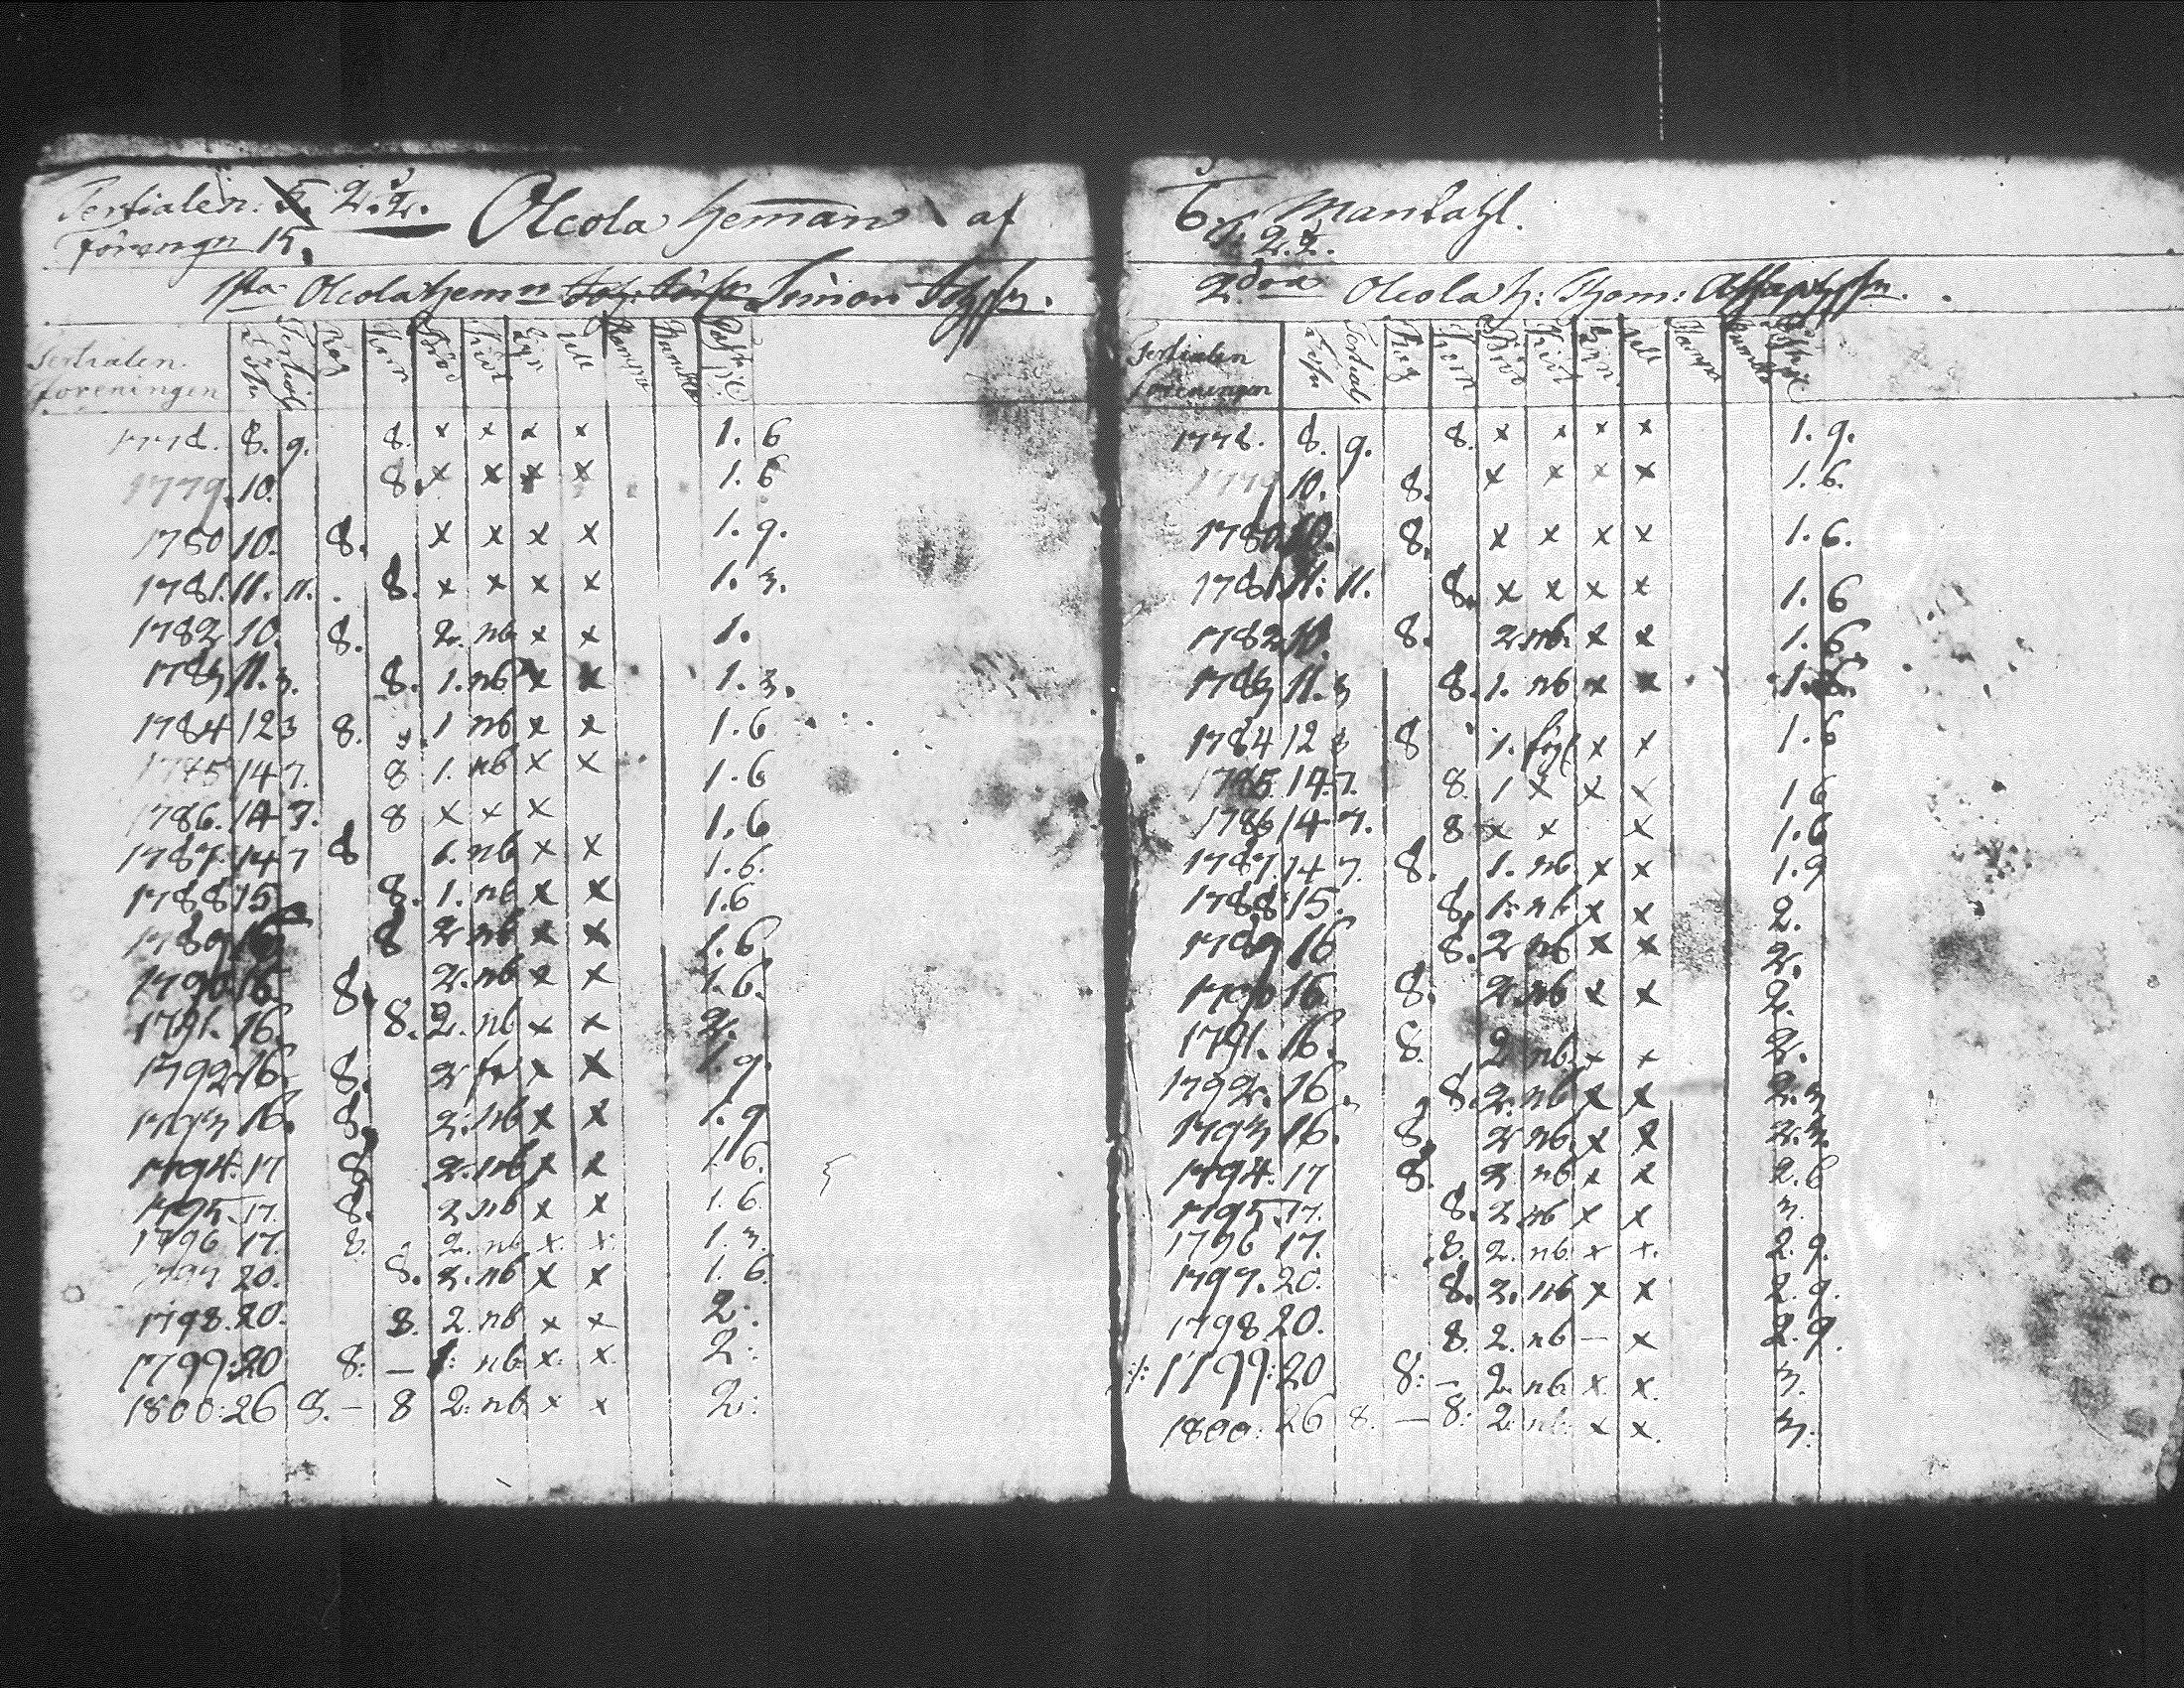 Tertialen: 5. 2.2. Olcola heman af
föreng 15.
1sta Olcola hemn Simon Johssn.
Tertialen
foreningen
1778. 8. 9. 8. x x x x 1. 6
1779. 10. 8. x x x x 1. 6
1780 10. 8. x x x x 1. 9.
1781. 11. 11. 8. x x x x 1. 3.
1782 10. 8. 2. nb x x 1.
1783 11. 3. 8. 1. nb x x 1. 3.
1784 12 3 8. 1 nb x x 1. 6
1785 14 7. 8 1. nb x x 1. 6
1786. 14 7. 8 x x x 1. 6
1787. 14 7 8 1. nb x x 1. 6.
1788 15 8. 1. nb x x 1. 6
1789 16 8 2 nb x x 1. 6
1790 16 8. 2. nb x x 1. 6.
1791. 16. 8. 2. nb x x 2.
1792 16. 8. 2 x x 1. 9.
1793 16. 8. 2. nb x x 1. 9
1794. 17 8 2. nb x x 1 6.
1795. 17. 8. 2 nb x x 1. 6
1796 17. 8. 2. nb x. x. 1. 3.
1797 20. 8. 2. nb x x 1. 6
1798. 20. 8. 2. nb x x 2.
1799: 20 8: – 1: nb x: x 2:
1800: 26 8. – 8 2: nb x x 2:
6. Mantahl.
2.2.
2dra Olcola h: Thom: Assaphssn.
Tertialen
foreningen
1778. 8. 9. 8. x x x x 1. 9.
1779 10. 8. x x x x 1. 6.
1780 10. 8. x x x x 1. 6.
1781 11: 11. 8. x x x x 1. 6
1782 10. 8. 2 nb. x x 1. 6
1783 11. 3 8. 1. nb x x 1. 6.
1784 12 3 8 1. x x 1. 6
1785. 14 7. 8. 1 x x x 1 6
1786 14 7. 8 x x x 1. 6
1787. 14 7. 8. 1. nb x x 1. 9
1788 15. 8. 1. nb x x 2.
1789 16 8. 2 nb x x 2.
1790 16 8. 2. nb x x 2.
1791. 16. 8. 2 nb. x x 2.
1792. 16. 8. 2. nb x x 2. 3
1793 16. 8. 2 nb. x x 2. 3.
1794. 17 8. 2 nb x x 2. 6
1795. 17. 8. 2 nb x x 3.
1796 17. 8. 2. nb x x. 2. 9.
1797. 20. 8. 2. nb x x 2. 9.
1798 20. 8. 2. nb – x 2. 9.
:/: 1799: 20 8: – 2. nb x. x. 3.
1800: 26 8. – 8: 2: nb: x x. 3: